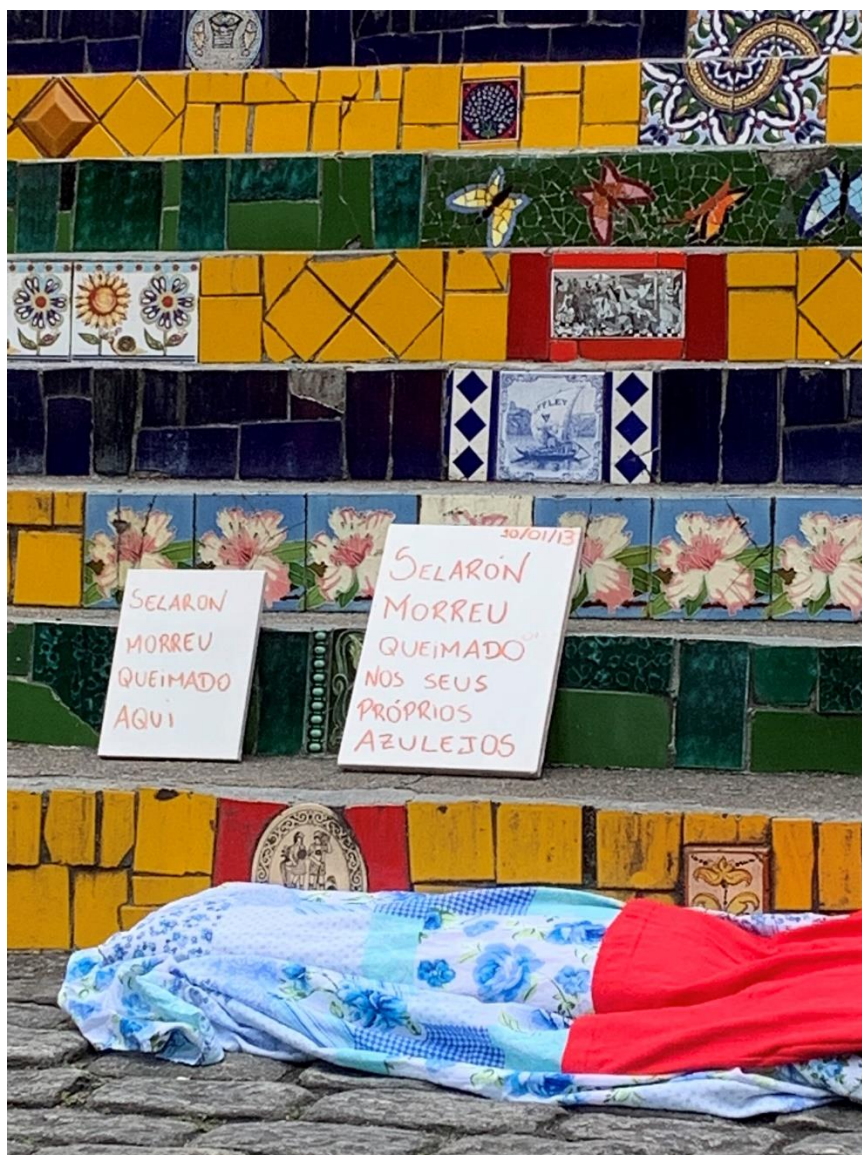 SELARON
MORREU
QUEIMADO
AQUI
10/01/13
SELARÓN
MORREU
QUEIMADO
NOS SEUS
PRÓPRIOS
AZULEJOS